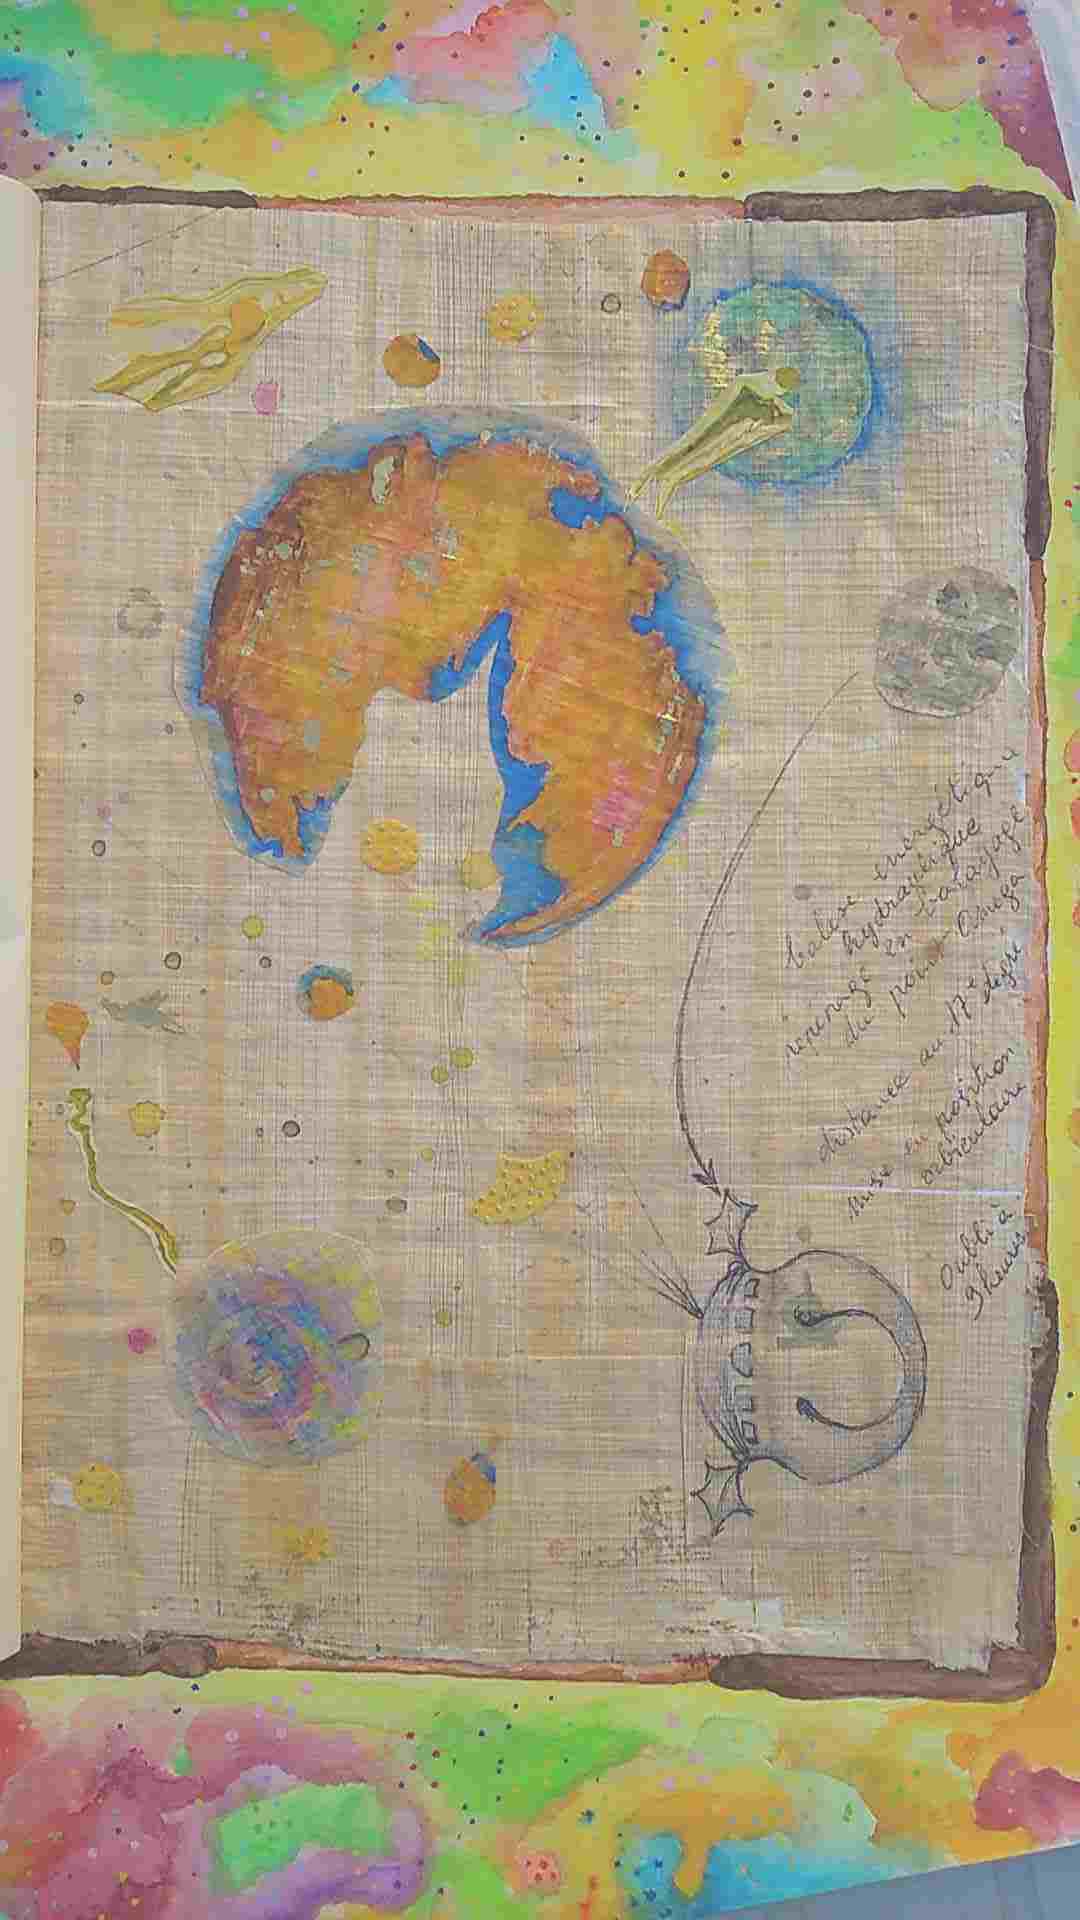 balise énergétique
hydraulique
repérage en balayage
du point Omega
distance au 17e degré
mise en position
orbiculaire
Oubli à
9 heures